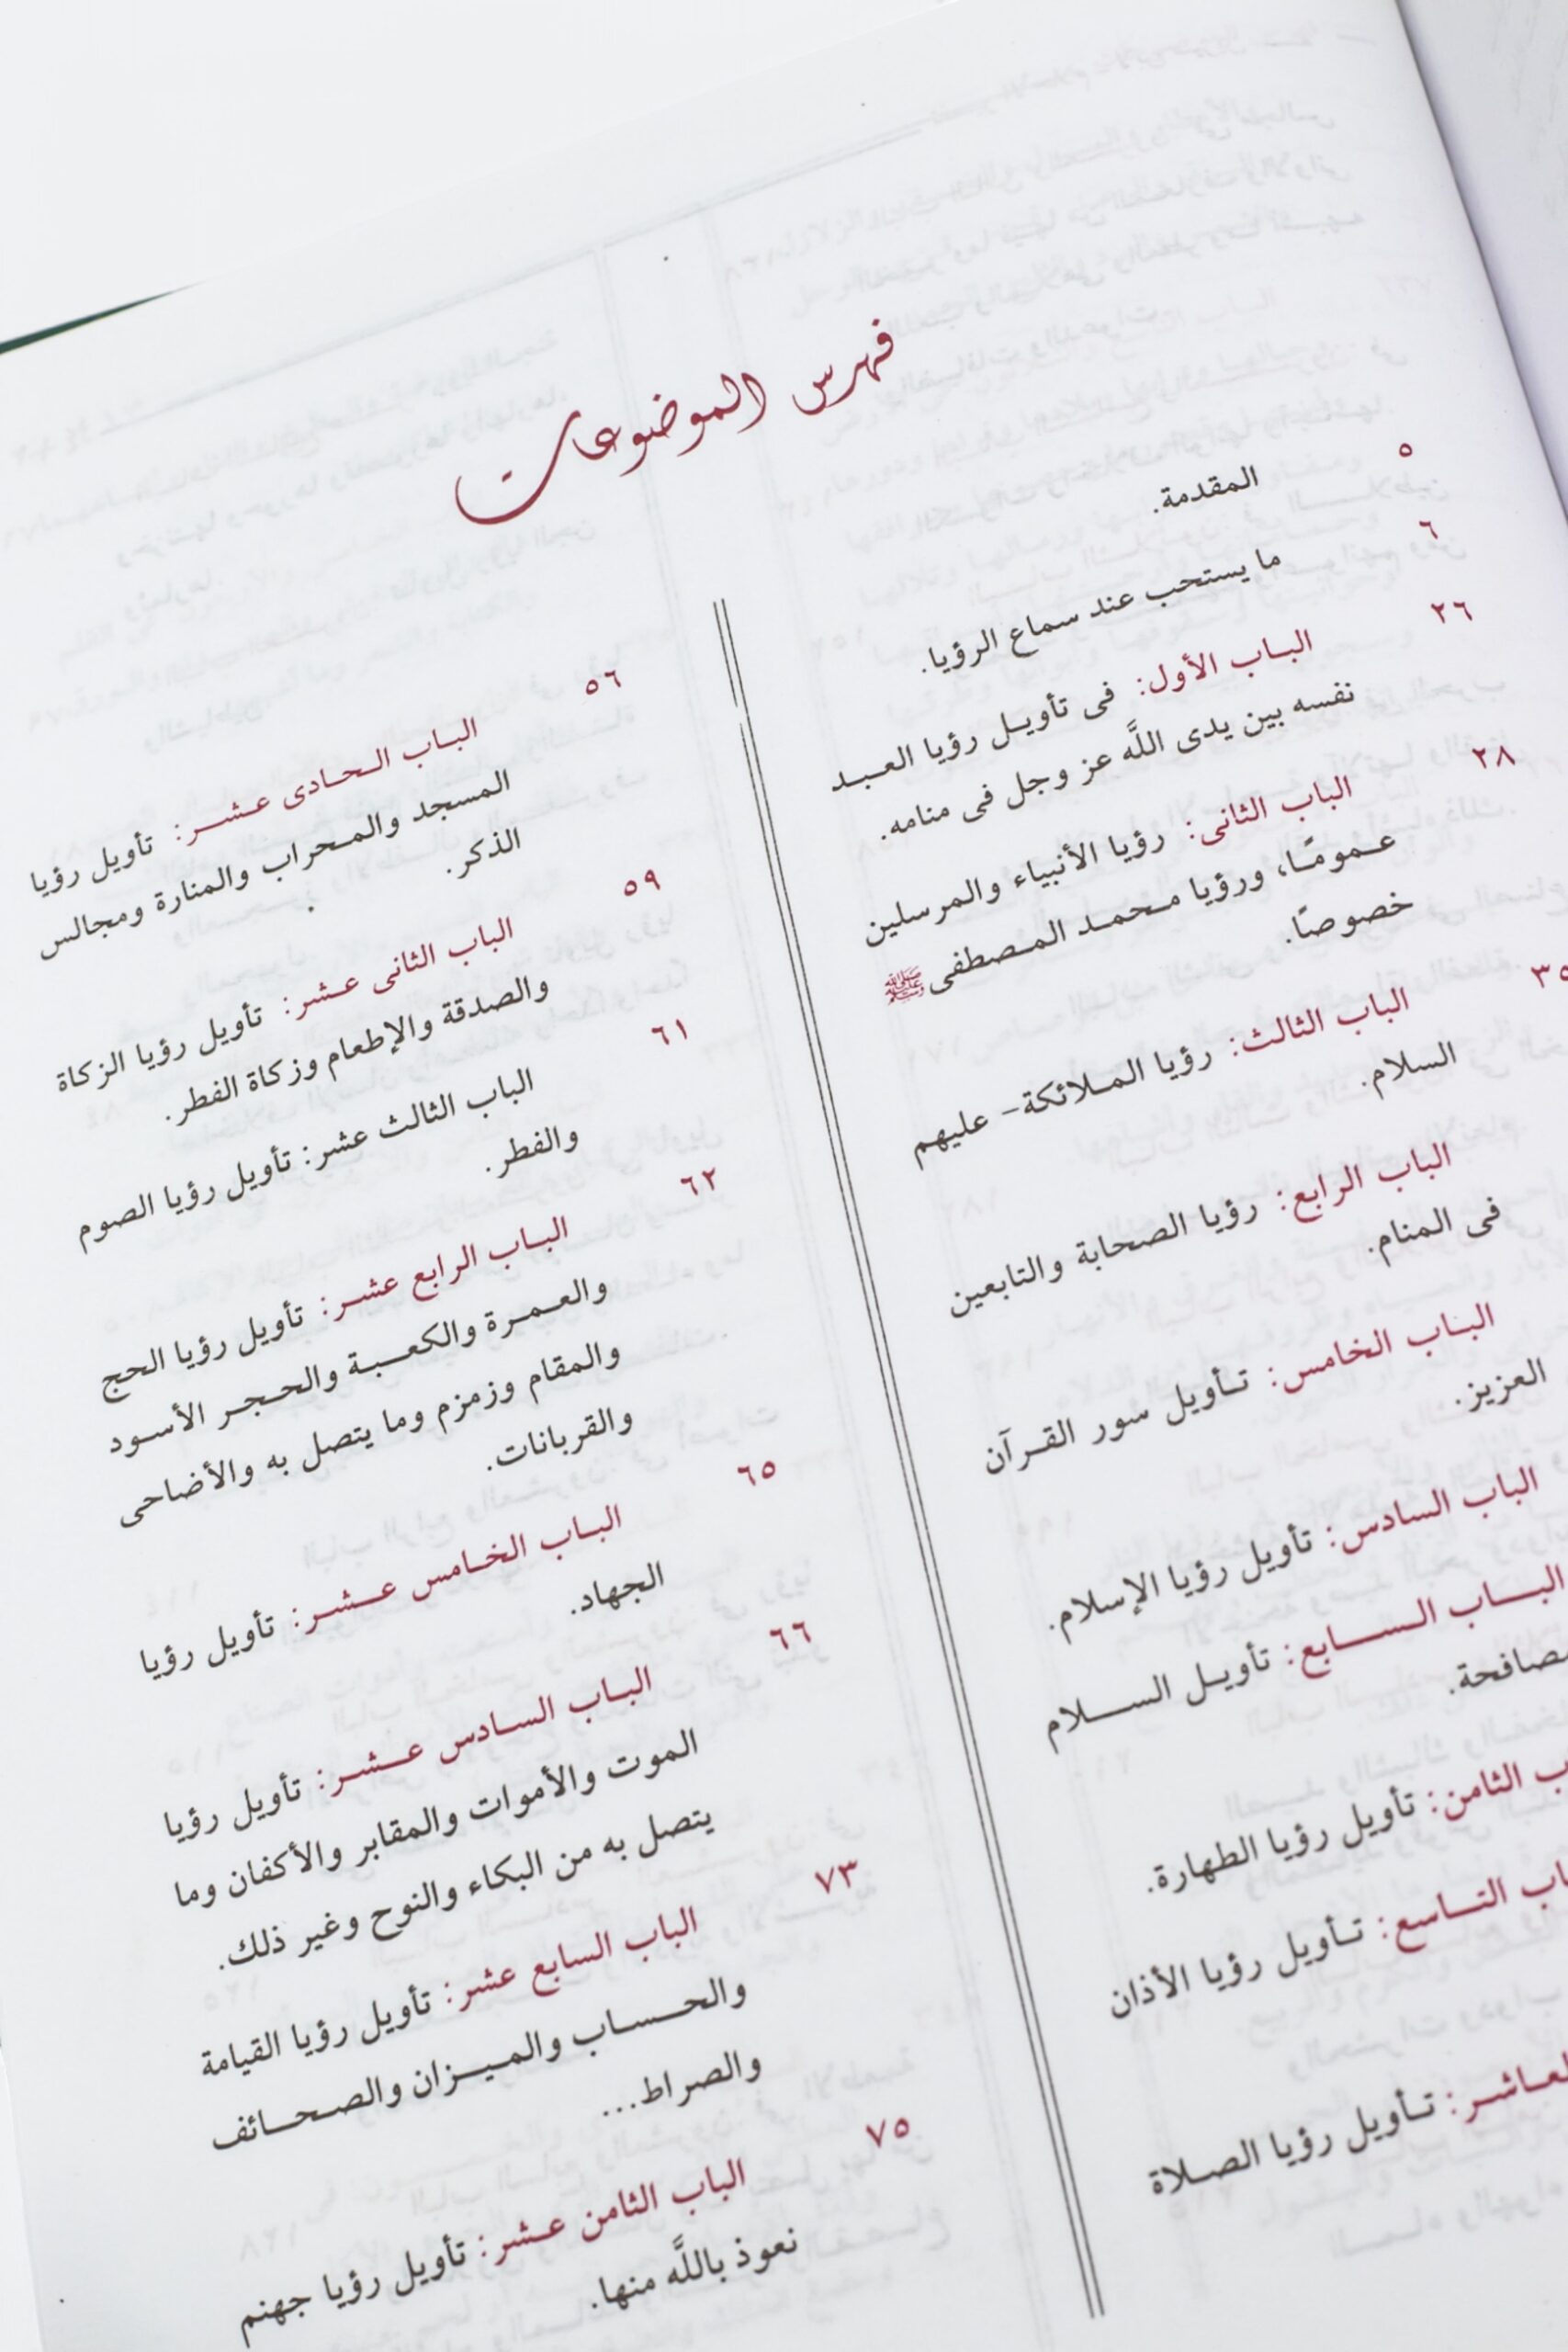 فهرس الموضوعات
٥
المقدمة.
٦
ما يستحب عند سماع الرؤيا.
٢٦
البـاب الأول: فى تأويـل رؤيا العـبـد
نفسه بين يدى اللَّه عز وجل فى منامه.
٢٨
الباب الثانى: رؤيا الأنبياء والمرسلين
عـمومـًا، ورؤيا مـحمـد المـصطفى ﷺ
خصوصًا.
٣٥
الباب الثالث: رؤيا المـلائكة- عليهم
السلام.
الباب الرابع: رؤيا الصحابة والتابعين
فى المنام.
البـاب الخامس: تـأويل سور القـرآن
العزيز.
الباب السادس: تأويل رؤيا الإسلام.
البــاب الـســـابع: تأويـل الســـلام
الثامن: تأويل رؤيا الطهارة.
التـاسع: تـأويل رؤيا الأذان
تـأويل رؤيا الصـلاة
٥٦
البـاب الـحـادى عـشـــر: تأويل رؤيا
المسجد والمـحراب والمنارة ومجالس
الذكر.
٥٩
الباب الثانى عـشر: تأويل رؤيا الزكاة
والصدقة والإطعام وزكاة الفطر.
٦١
الباب الثالث عشر: تأويل رؤيا الصوم
والفطر.
٦٢
البـاب الرابع عشـر: تأويل رؤيا الحج
والعـمـرة والكعـبـة والحـجـر الأسـود
والمقام وزمزم وما يتصل به والأضاحى
والقربانات.
٦٥
البـاب الخـامس عـــشــر: تأويل رؤيا
الجهاد.
٦٦
البـاب السـادس عـــشــر: تأويل رؤيا
الموت والأموات والمقابر والأكفان وما
يتصل به من البكاء والنوح وغير ذلك.
٧٣
الباب السابع عشر: تأويل رؤيا القيامة
والحـــسـاب والمـيــزان والصـحــائف
والصراط...
٧٥
الباب الثامن عـشر: تأويل رؤيا جهنم
نعوذ باللَّه منها.